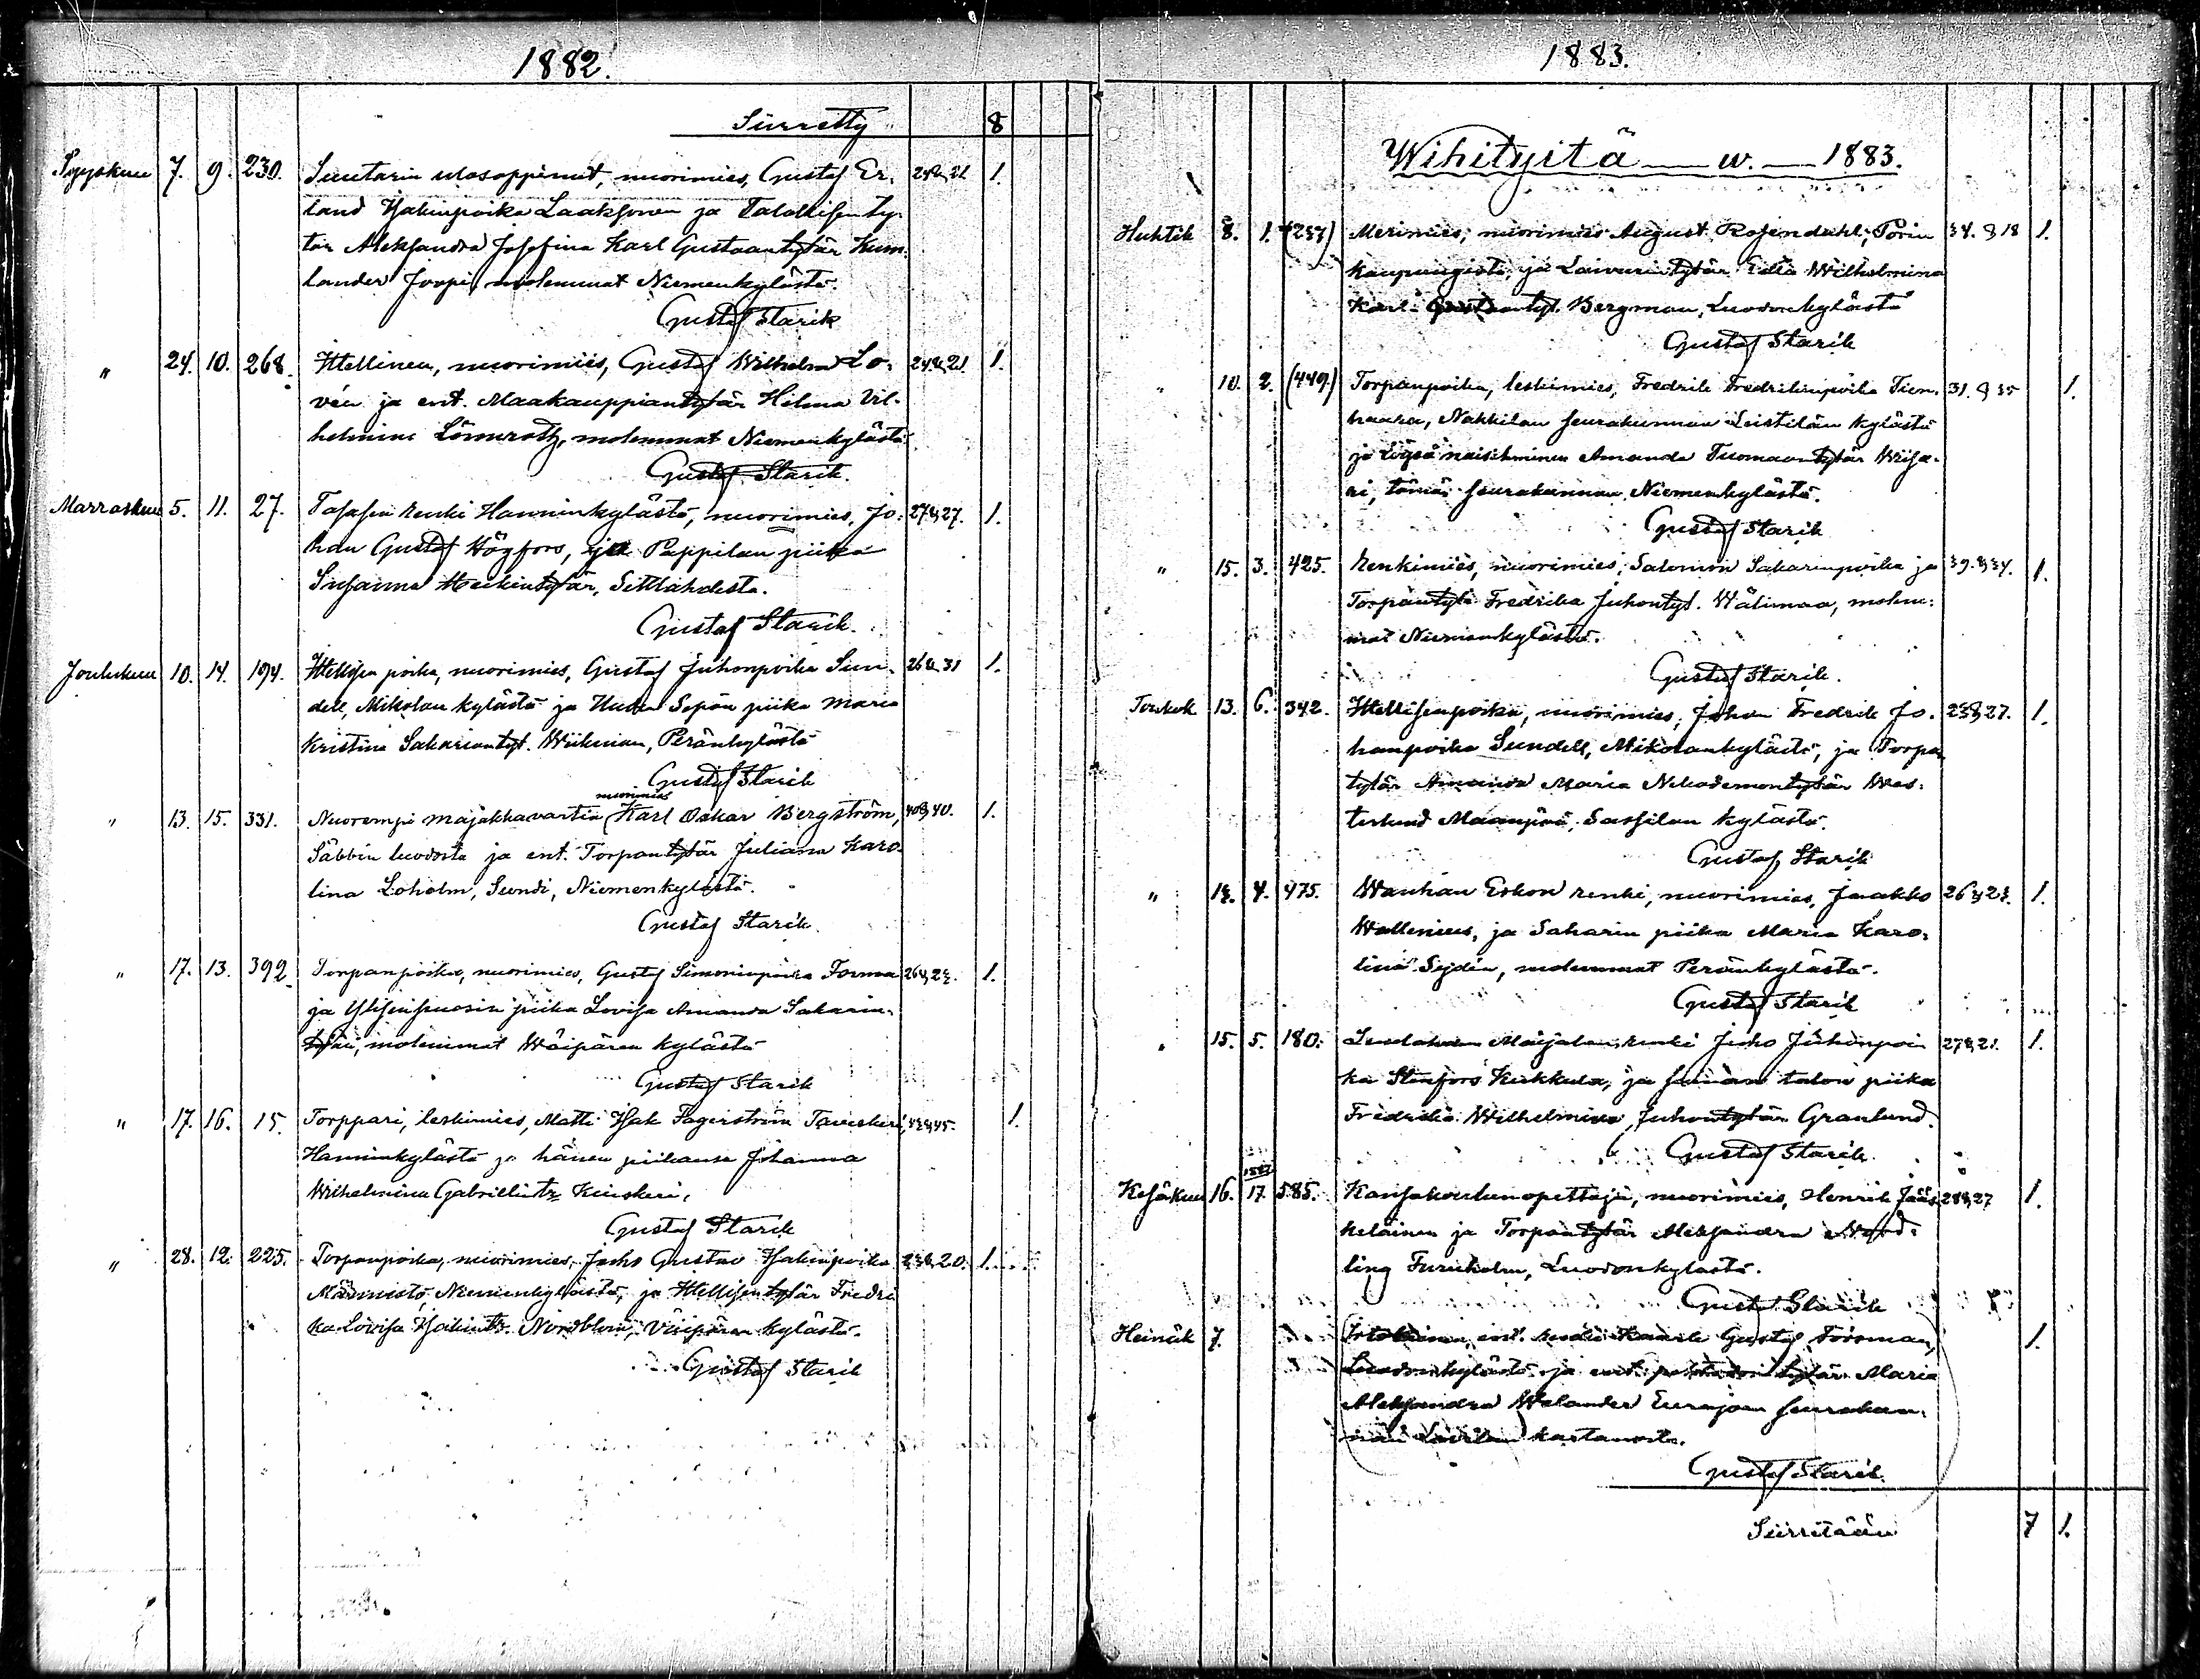 1882.
Siirretty 8
Syyskuu 7. 9. 230. Suutarin ulosoppinut, nuorimies, Gustaf Er- 24 & 21 1.
land Isakinpoika Laaksonen ja Talollisenty-
tär Aleksandra Josefina Karl Gustaantytär Kum-
lander Joopi, molemmat Niemenkylästä.
Gustaf Starik
" 24. 10. 268. Itellinen, nuorimies, Gustaf Wilhelm Lo- 24 & 21. 1.
vén ja ent. Maakauppiantytär Hilma Vil-
helmina Lönnroth, molemmat Niemenkylästä.
Gustaf Starik.
Marraskuu 5. 11. 27. renki Hanninkylästä, nuorimies, Jo- 27 & 27. 1.
han Gustaf Högfors, ja Pappilan piika
Susanna Heikintytär, Settlahdesta.
Gustaf Starik.
Joulukuu 10. 14. 194. Itellisen poika, nuorimies, Gustaf Juhonpoika Sun- 26 & 31 1.
dell, Mikolan kylästä ja Sepän piika Maria
Kristina Sakariantyt. Wiikman, Peränkylästä
Gustaf Starik
nuorimies
" 13. 15. 331. Nuorempi majakkavartia Karl Oskar Bergström, 40 & 40. 1.
Säbbin luodosta ja ent. Torpantytär Juliana Karo-
lina Loholm, Sundi, Niemenkylästä.
Gustaf Starik.
" 17. 13. 392. Torpanpoika, nuorimies, Gustaf Simoninpoika Forma 1.
ja piika Lovisa Amanda Sakarin-
tytär, molemmat Wäipären kylästä
Gustaf Starik
" 17. 16. 15. Torppari, leskimies, Matti Isak Fagerström 43 & 45. 1.
Hanninkylästä ja hänen piikansa Johanna
Wilhelmina Gabrielintr.
Gustaf Starik
" 28. 12. 225. Torpanpoika, nuorimies, Juho Gustav Isakinpoika 23 & 20. 1.
Männistö, Niemenkylästä, ja Itellisen tytär Fredri
ka Lovisa Isakintr. Nordblom, Viäpären kylästä.
Gustaf Starik
1883.
Wihityitä w. 1883.
Huhtik 8. 1. (237) Merimies, nuorimies August Rosendahl, Porin 34. & 18 1.
kaupungista, ja Laivurintytär Edla Wilhelmina
Karl Gustaantyt. Bergman, Luodonkylästä
Gustaf Starik
" 10. 2. (449.) Torpanpoika, leskimies, Fredrik Fredrikinpoika Tien- 31. & 35 1.
haara, Nakkilan seurakunnan Leistilän kylästä
ja Löysä naisihminen Amanda Tuomaantytär
tämän seurakunnan Niemenkylästä.
Gustaf Starik
" 15. 3. 425. Renkimies, nuorimies, Salomon Sakarinpoika ja 39. & 34. 1.
Torpantytä Fredrika Juhontyt. Wälimaa, molem-
mat Niemenkylästä.
Gustaf Starik.
Toukok 13. 6. 342. Itellisenpoika, nuorimies, Johan Fredrik Jo- 23 & 27. 1.
hanpoika Sundell, Mikolankylästä, ja Torpan
tytär Amanda Maria Nikodemontytär Wes-
terlund Maanpää, Sassilan kylästä.
Gustaf Starik
" 4. 475. Wanhan Eskon renki, nuorimies, Jaakko 1.
Wallenius, ja Sakarin piika Maria Karo-
lina Sejdén, molemmat Peränkylästä.
Gustaf Starik
" 15. 5. 180. renki Juho Juhonpoi 27 & 21. 1.
ka Stenfors Kukkula, ja saman talon piika
Fredrika Wilhelmina Juhontytär Granlund.
Gustaf Starik.
1882
Kesäkuu 16. 17. 585. Kansakoulunopettaja, nuorimies, Henrik Jääs- 28 & 27 1.
keläinen ja Torpantytär Aleksandra Nord-
ling Furuholm, Luodonkylästä.
Gustaf Starik
Heinäk 7. ent. renki Kaarle Gustaf Forsman, 1.
Luodonkylästä ja ent. tytär Maria
Aleksandra Welander Eurajoen seurakun-
nan kartanosta.
Gustaf Starik.
Siirretään 7 1.